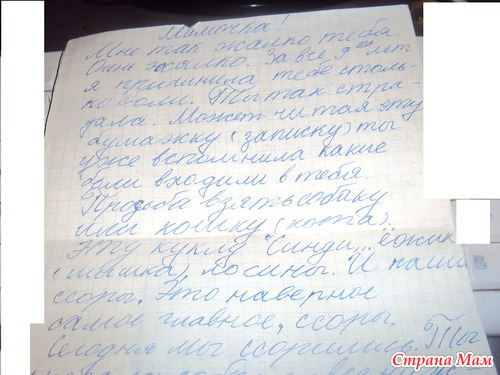 Мамочка!
Мне так жалко тебя
Очень жалко. За все 9 лет
я причинила тебе столь-
ко боли. Ты так стра-
дала. Может читая эту
бумажку (записку) ты
уже вспомнила какие
боли входили в тебя.
Прозьба взять собаку
или кошку (кота).
Эту куклу "Синди,, ёжик
(мышка), лосины. И наши
ссоры. Это наверное
самое главное, ссоры.
Сегодня мы ссорились. Ты
Страна Мам